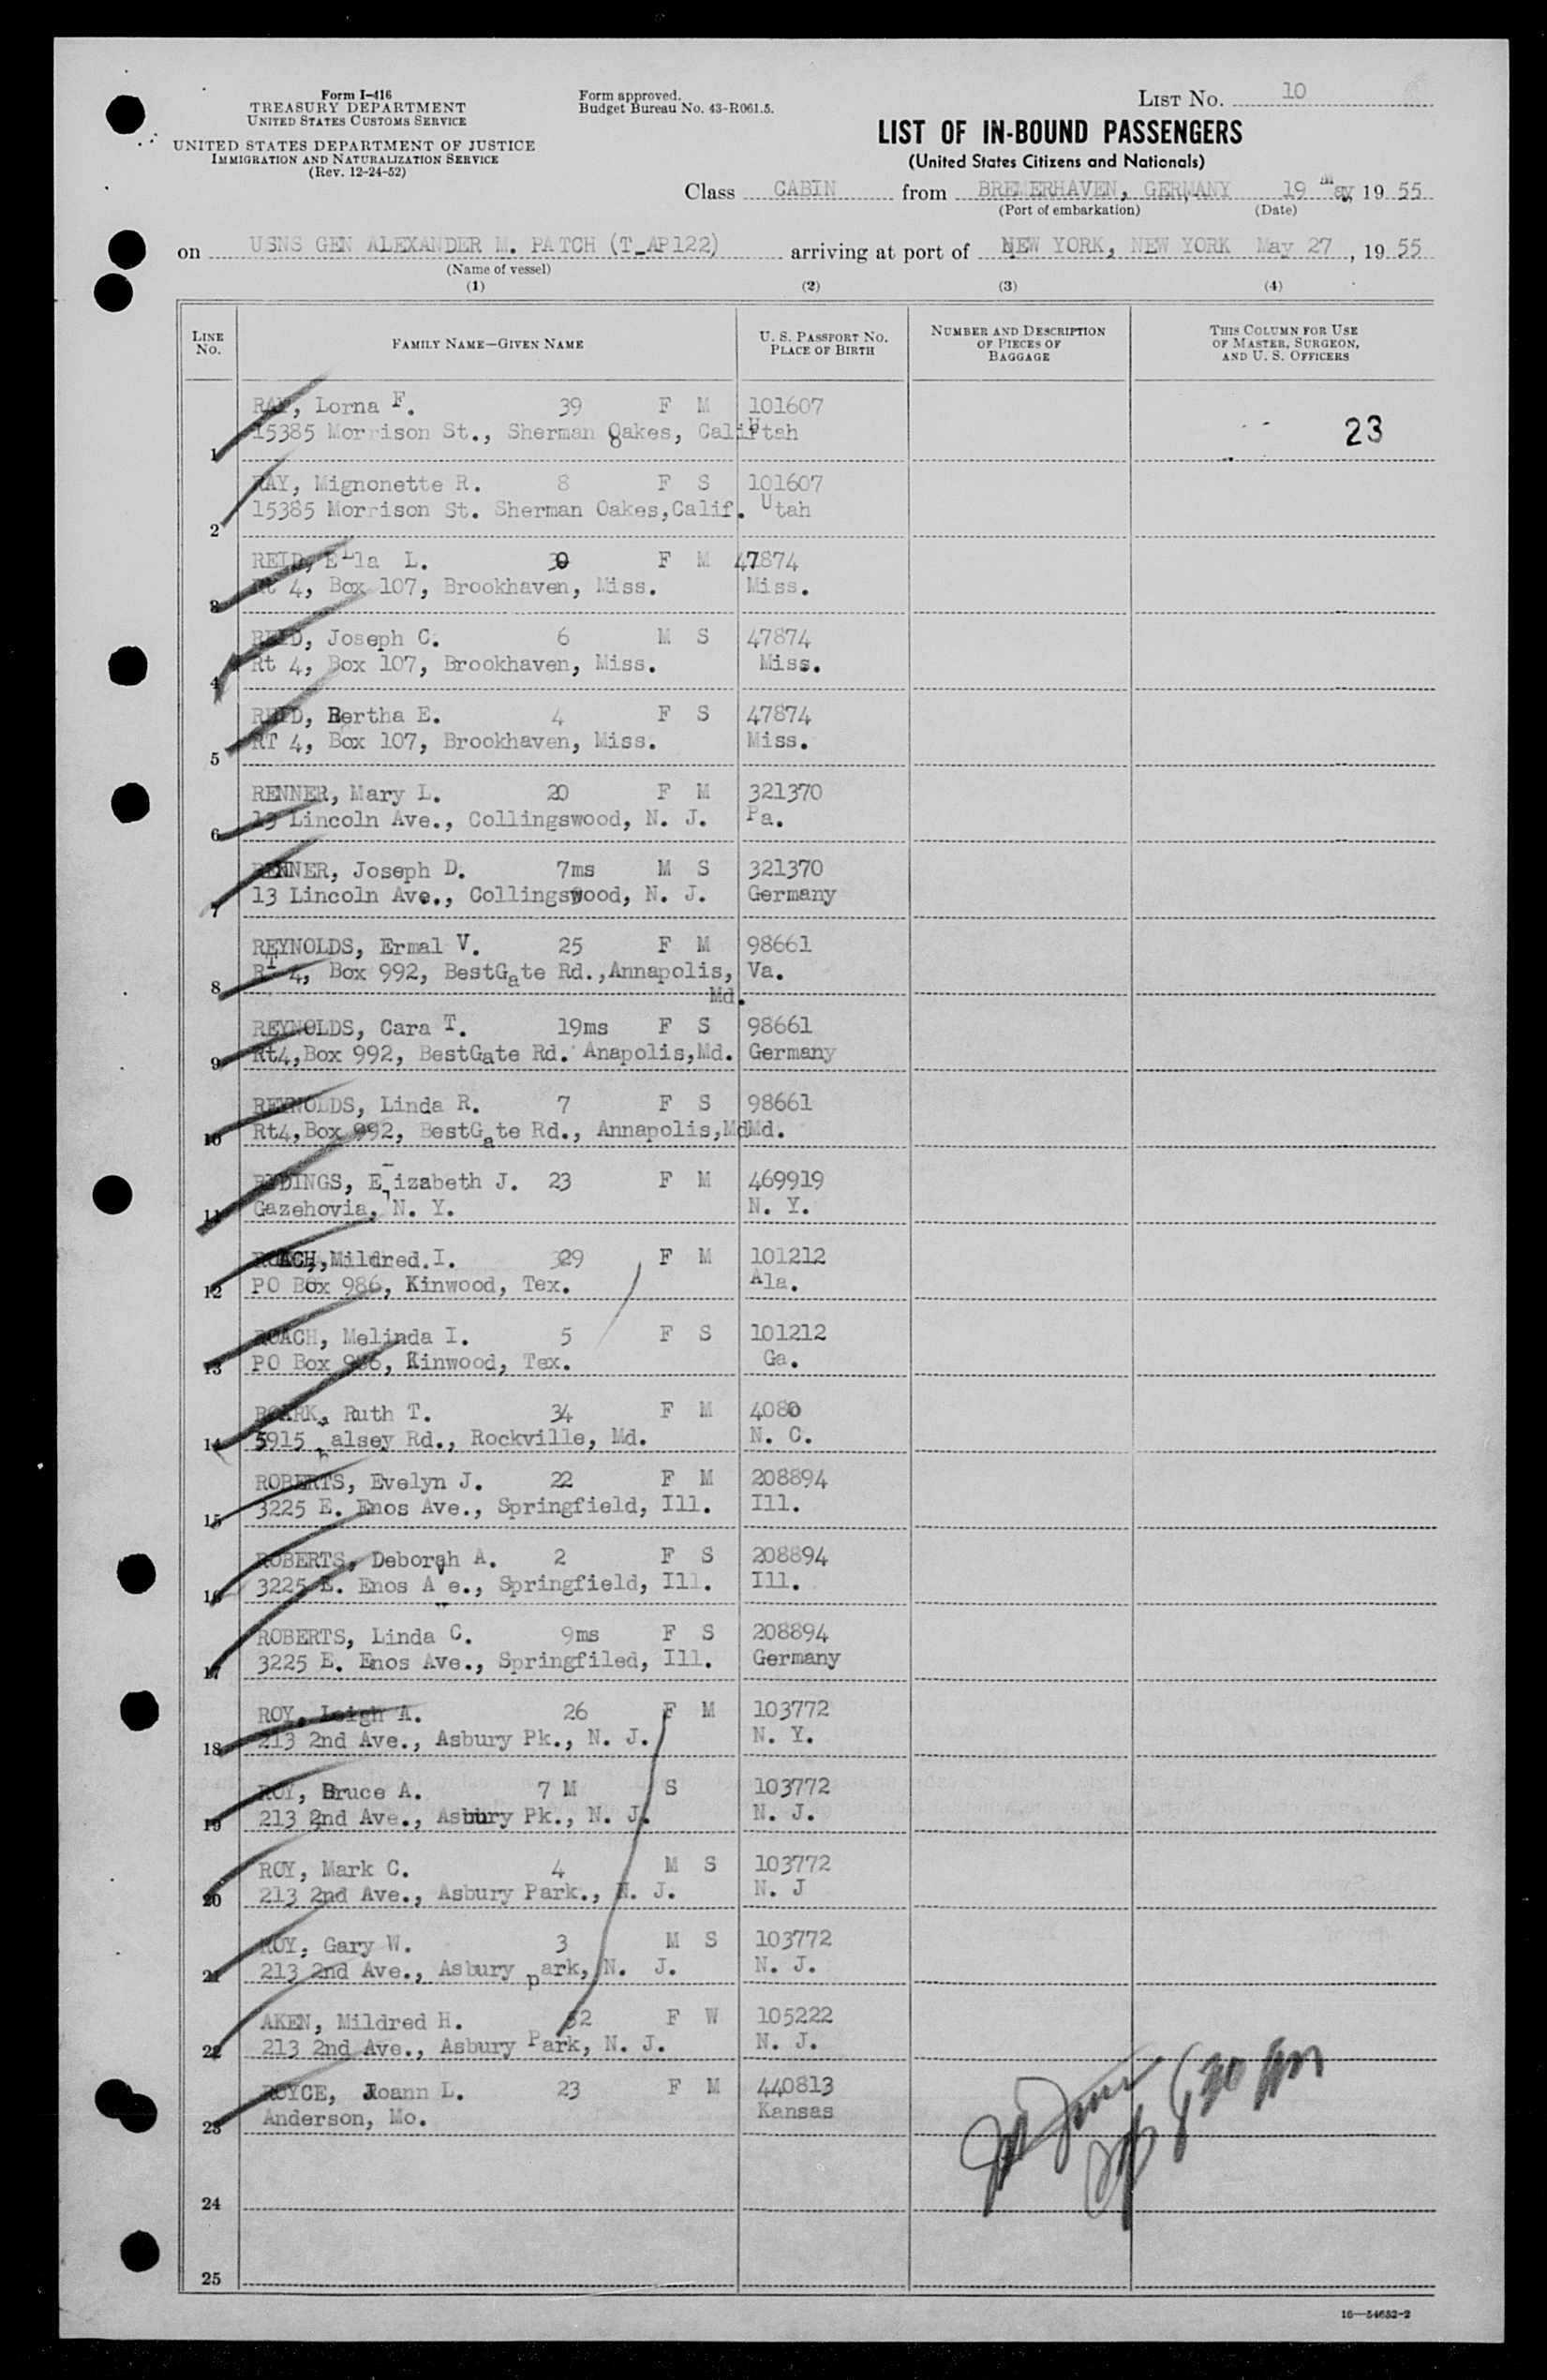 Form I-416
TREASURY DEPARTMENT
UNITED STATES CUSTOMS SERVICE
UNITED STATES DEPARTMENT OF JUSTICE
IMMIGRATION AND NATURALIZATION SERVICE
(Rev. 12-24-52)
Form approved.
Budget Bureau No. 43-R061.5.
LIST No. 10
LIST OF IN-BOUND PASSENGERS
(United States Citizens and Nationals)
Class CABIN from BREMERHAVEN, GERMANY 19 May, 19 55
(Port of embarkation) (Date)
on USNS GEN ALEXANDER M. PATCH (T_AP122) arriving at port of NEW YORK, NEW YORK May 27, 19 55
(Name of vessel)
(1) (2) (3) (4)
LINE No. FAMILY NAME—GIVEN NAME U. S. PASSPORT No. PLACE OF BIRTH NUMBER AND DESCRIPTION OF PIECES OF BAGGAGE THIS COLUMN FOR USE OF MASTER, SURGEON, AND U. S. OFFICERS
RAY, Lorna F. 39 F M 101607
1 15385 Morrison St., Sherman Oakes, Calif Utah 23
RAY, Mignonette R. 8 F S 101607
2 15385 Morrison St. Sherman Oakes,Calif. Utah
REID, Ella L. 30 F M 47874
3 Rt 4, Box 107, Brookhaven, Miss. Miss.
REID, Joseph C. 6 M S 47874
4 Rt 4, Box 107, Brookhaven, Miss. Miss.
REID, Bertha E. 4 F S 47874
5 RT 4, Box 107, Brookhaven, Miss. Miss.
RENNER, Mary L. 20 F M 321370
6 13 Lincoln Ave., Collingswood, N. J. Pa.
RENNER, Joseph D. 7ms M S 321370
7 13 Lincoln Ave., Collingswood, N. J. Germany
REYNOLDS, Ermal V. 25 F M 98661
8 RT 4, Box 992, BestGate Rd.,Annapolis, Md. Va.
REYNOLDS, Cara T. 19ms F S 98661
9 Rt4,Box 992, BestGate Rd. Anapolis,Md. Germany
REYNOLDS, Linda R. 7 F S 98661
10 Rt4,Box 992, BestGate Rd., Annapolis,Md Md.
Elizabeth J. 23 F M 469919
11 Gazehovia, N. Y. N. Y.
ROACH,Mildred.I. 29 F M 101212
12 PO Box 986, Kinwood, Tex. Ala.
ROACH, Melinda I. 5 F S 101212
13 PO Box 986, Kinwood, Tex. Ga.
ROARK, Ruth T. 34 F M 4080
14 5915 halsey Rd., Rockville, Md. N. C.
ROBERTS, Evelyn J. 22 F M 208894
15 3225 E. Enos Ave., Springfield, Ill. Ill.
ROBERTS, Deborah A. 2 F S 208894
16 3225 E. Enos Ave., Springfield, Ill. Ill.
ROBERTS, Linda C. 9ms F S 208894
17 3225 E. Enos Ave., Springfiled, Ill. Germany
ROY, Leigh A. 26 F M 103772
18 213 2nd Ave., Asbury Pk., N. J. N. Y.
ROY, Bruce A. 7 M S 103772
19 213 2nd Ave., Asbury Pk., N. J. N. J.
ROY, Mark C. 4 M S 103772
20 213 2nd Ave., Asbury Park., N. J. N. J
ROY, Gary W. 3 M S 103772
21 213 2nd Ave., Asbury park, N. J. N. J.
AKEN, Mildred H. 52 F W 105222
22 213 2nd Ave., Asbury Park, N. J. N. J.
ROYCE, Joann L. 23 F M 440813
23 Anderson, Mo. Kansas
24
25
16—54652-2